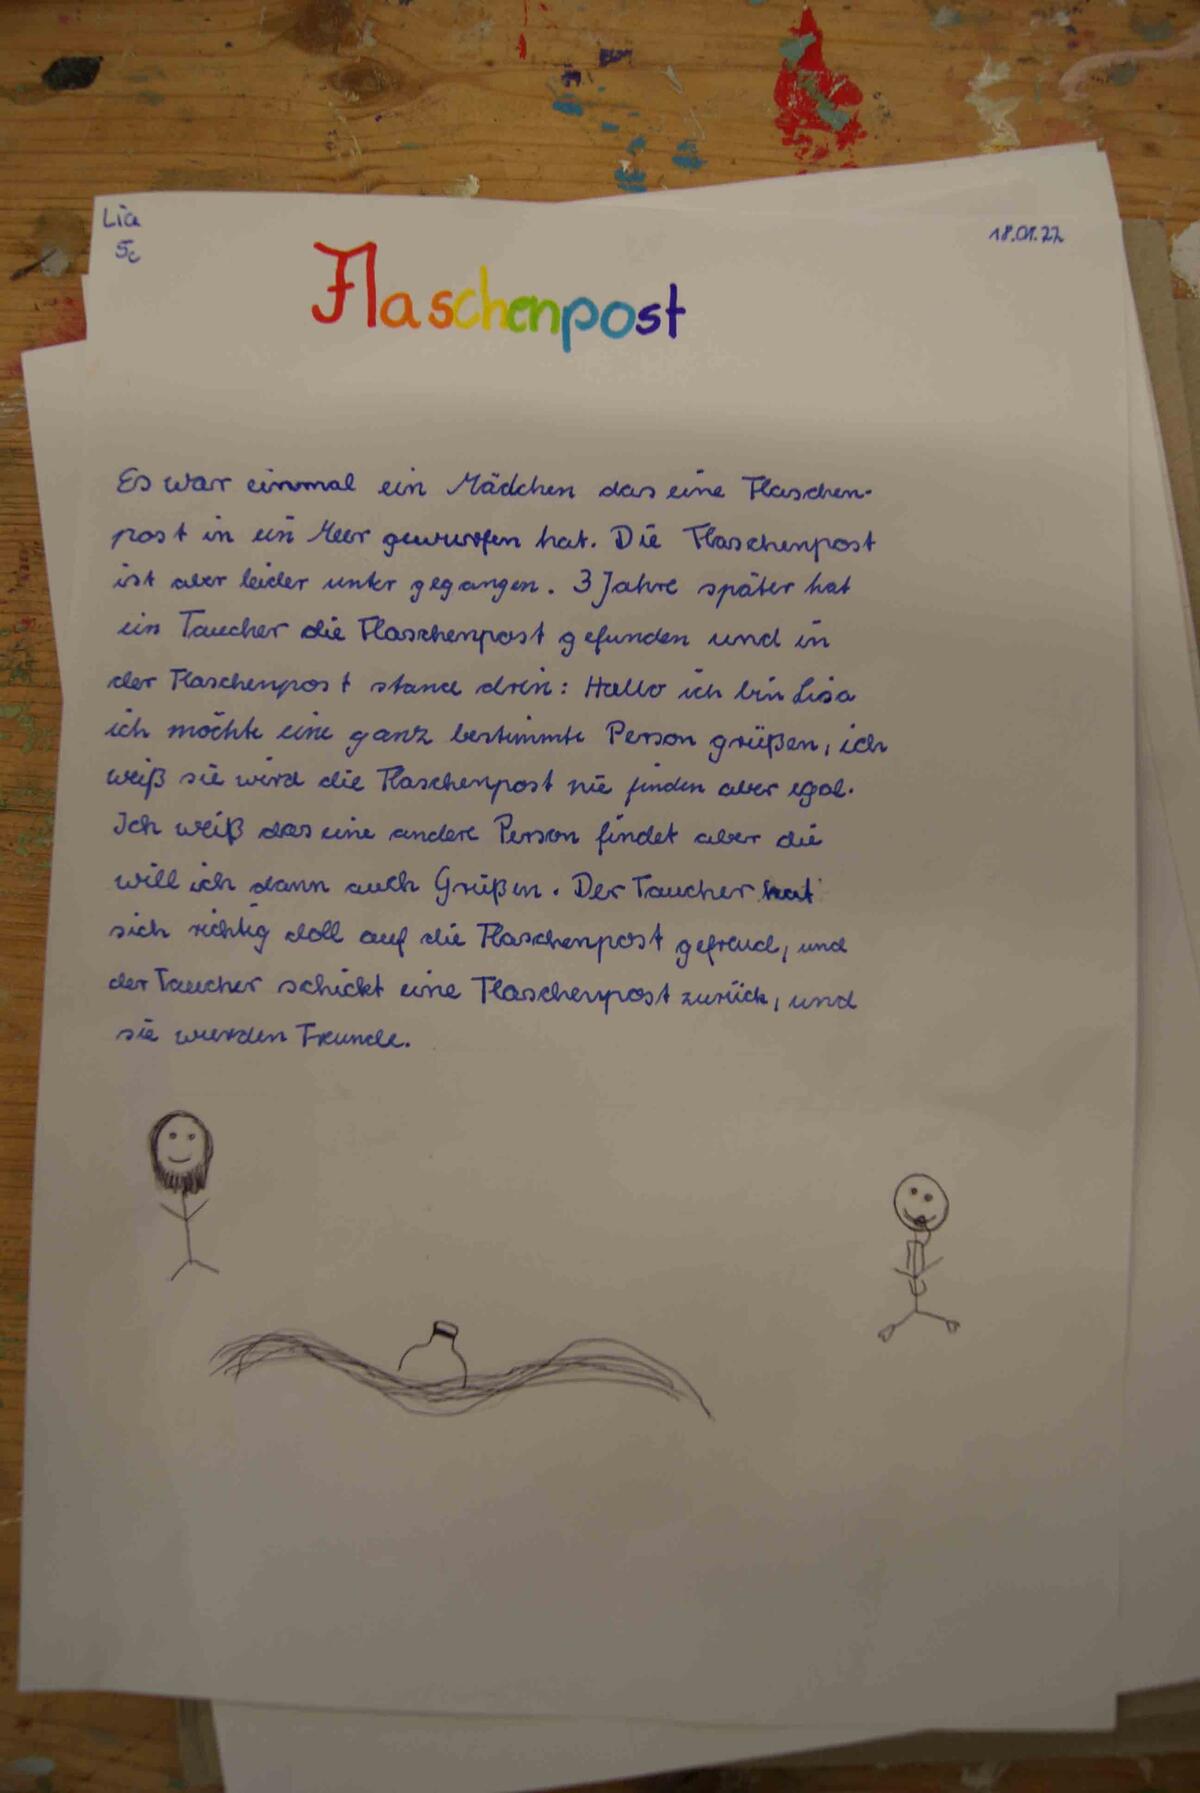 Lia
5c
18.01.22
Flaschenpost
Es war einmal ein Mädchen das eine Flaschen-
post in ein Meer geworfen hat. Die Flaschenpost
ist aber leider unter gegangen. 3 Jahre später hat
ein Taucher die Flaschenpost gefunden und in
der Flaschenpost stand drin: Hallo ich bin Lisa
ich möchte eine ganz bestimmte Person grüßen, ich
weiß sie wird die Flaschenpost nie finden aber egal.
Ich weiß das eine andere Person findet aber die
will ich dann auch Grüßen. Der Taucher hat
sich richtig doll auf die Flaschenpost gefreud, und
der Taucher schickt eine Flaschenpost zurück, und
sie wurden Freunde.